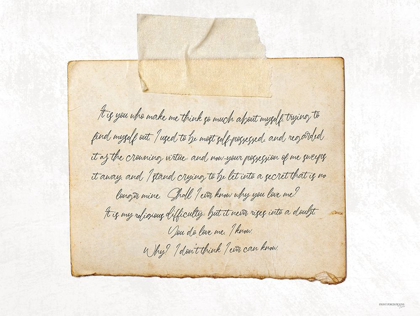 It is you who make me think so much about myself, trying to
find myself out. I used to be most self-possessed, and regarded
it as the crowning virtue and now your possession of me sweeps
it away, and I stand crying to be let into a secret that is no
longer mine. Shall I ever know why you love me?
It is my religious difficulty; but it never rises into a doubt.
You do love me, I know.
Why? I don't think I ever can know.